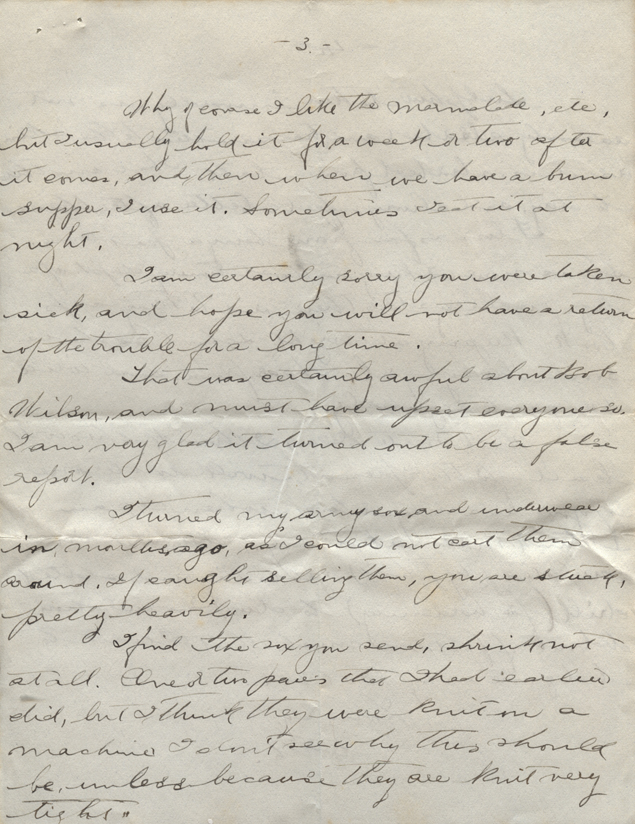 - 3. -
Why of course I like the marmalade, etc,
but I usually hold it for a week or two after
it comes, and then when we have a bum
supper, I use it. Sometimes I eat it at
night.
I am certainly sorry you were taken
sick, and hope you will not have a return
of the trouble for a long time.
That was certainly awful about Bob
Wilson, and must have upset everyone so.
I am very glad it turned out to be a false
report.
I turned my army sox and underwear
in, months ago, as I could not cart them
around. If caught selling them, you are stuck,
pretty heavily.
I find the sox you send, shrink not
at all. One or two pairs that I had earlier
did, but I think they were knit on a
machine I don't see why this should
be, unless because they are knit very
tight.